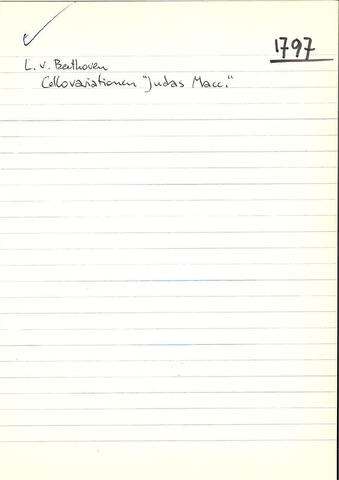 1797
L. v. Beethoven
Cellovariationen "Judas Macc."